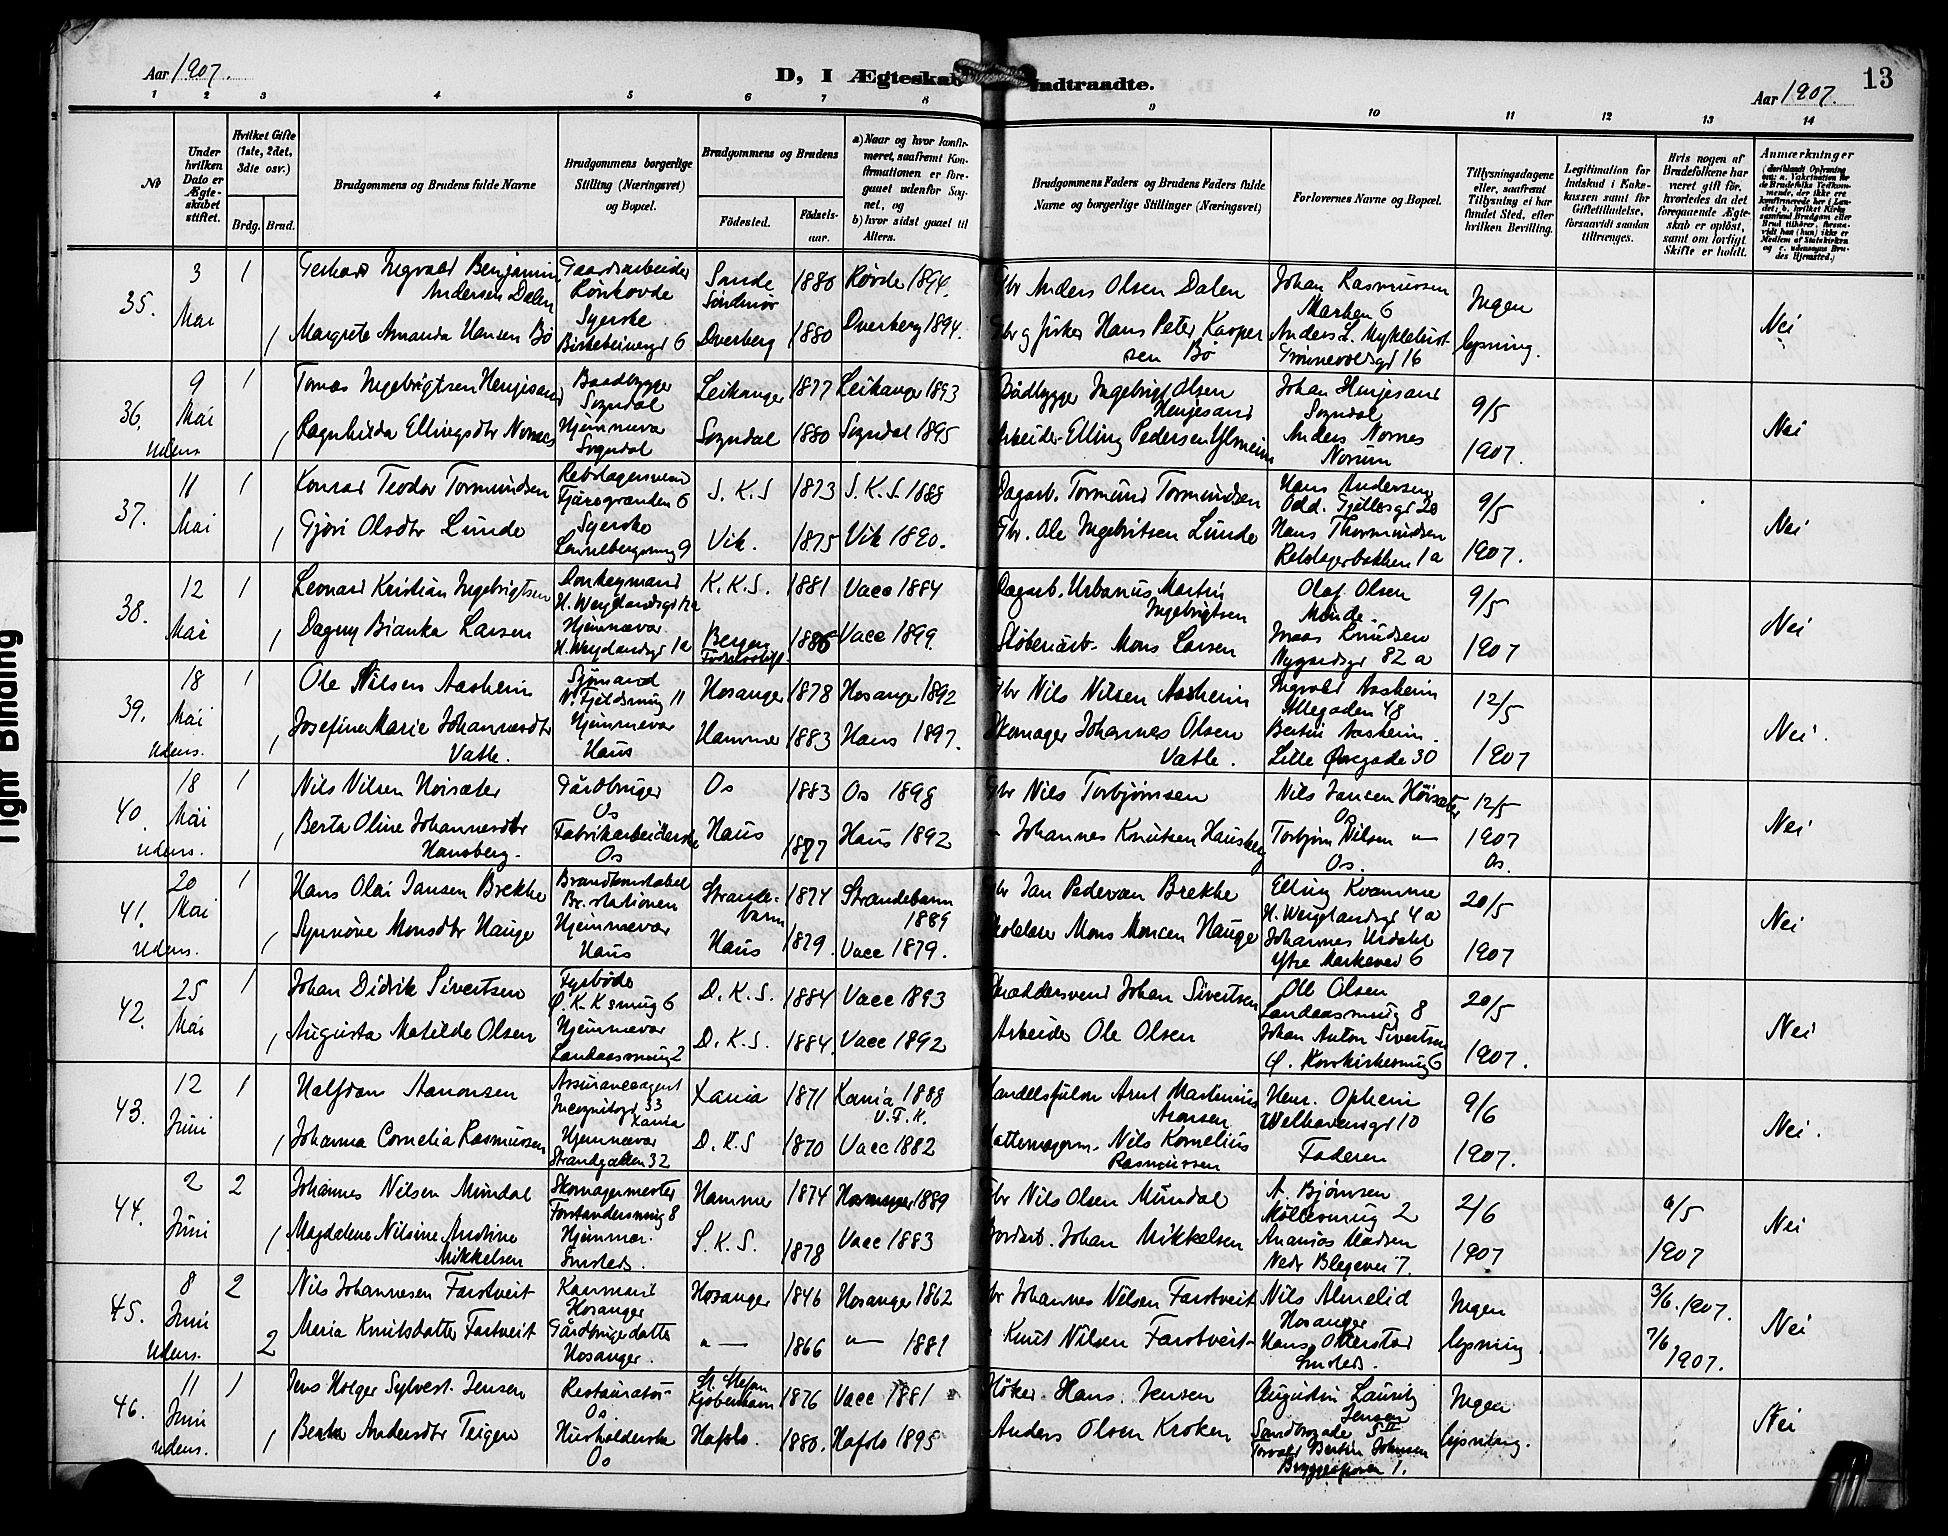 13
Aar 1907.
D, I Ægteskab Indtraadte.
Aar 1907.
1 2 3 4 5 6 7 8 9 10 11 12 13 14
No
Under hvilken Dato er Ægteskabet stiftet.
Hvilket Gifte (1ste, 2det, 3die osv.)
Brdg. Brud.
Brudgommens og Brudens fulde Navne
Brudgommens borgerlige Stilling (Næringsvei) og Bopæl.
Brudgommens og Brudens
Födested.
Födselsaar.
a) Naar og hvor konfirmeret, saafremt Konfirmationen er foregaaet udenfor Sognet, og
b) hvor sidst gaaet til Alters.
Brudgommens Faders og Brudens Faders fulde Navne og borgerlige Stillinger (Næringsvei)
Forlovernes Navne og Bopæl.
Tillysningsdagene eller, saafremt Tillysning ei har fundet Sted, efter hvilken Bevilling.
Legitimation for Indskud i Enkekassen samt for Giftetilladelse, forsaavidt saadan tiltrænges.
Hvis nogen af Brudefolkene har været gift før, hvorledes da det foregaaende Ægteskab er opløst, samt om lovligt Skifte er holdt.
Anmærkninger
35. 3 Mai 1 Gerhard Ingvald Benjamin Andersen Dalen Gaardsarbeider Sande Söndmör 1880 Rövde 1894. Gbr Anders Olsen Dalen Johan Rasmussen Marken 6 Ingen lysning. Nei
1 Margrete Amanda Hansen Bö Syerske Birkebeinergd 6 Dverberg 1880 Dverberg 1894. Gbr og fisker Hans Peter Kaspersen Bö Anders L. Myklebust Trönnevoldsgd 16
36. udens 9 Mai 1 Tomas Ingebrigtsen Henjesand Baadbygger Sogndal Leikanger 1877 Leikanger 1893 Bådbygger Ingebrigt Olsen Henjesand Johan Henjesand Sogndal 9/5 1907. Nei
1 Ragnhilda Ellingsdtr Nornes Hjemmevær Sogndal Sogndal 1880 Sogndal 1895 Arbeider Elling Pedersen Anders Nornes Norum
37. 11 Mai 1 Konrad Teodor Tormundsen Rebslagersvend Tjæregrenden 6 S. K. S 1873 S. K. S. 1888 Dagarb. Tormund Tormundsen Hans Andersen Odd. Gjellesgd 20 9/5 1907. Nei
1 Gjöri Olsdtr Lunde Syerske 9 Vik. 1875 Vik 1890. Gbr. Ole Ingebritsen Lunde Hans Thormundsen Rebslagerbakken 1a
38. 12 Mai 1 Leonard Kristian Ingebrigtsen Donkeymand H. Wergelandsgd 12a K. K. S. 1881 Vacc 1884 Dagarb. Urbanus Martin Ingebrigtsen Olaf Olsen Minde 9/5 1907 Nei
1 Dagny Bianka Larsen Hjemmevær. H. Wergelandsgd 1a Bergen Födselsstift. 1885 Vacc 1899. Stöberiarb. Mons Larsen Knudsen Nygardsgd 82 a
39. udens. 18 Mai 1 Ole Nilsen Aasheim Sjömand N. Fjeldsmug 11 Hosanger 1878 Hosanger 1892 Gbr Nils Nilsen Aasheim Ingvald Aasheim Allegaden 48 12/5 1907 Nei.
1 Josefine Marie Johannesdtr Vatle. Hjemmevær Haus Hammer 1883 Haus 1897. Skomager Johannes Olsen Vatle. Bertin Aasheim. Lille Øvregade 30
40. udens. 18 Mai 1 Nils Nilsen Hoisæter Gårdbruger Os Os 1883 Os 1898 Gbr Nils Torbjörnsen Nils Jansen Höisæter Os 12/5 1907 Os. Nei
1 Berta Oline Johannesdtr Hausberg. Fabrikarbeiderske Os Haus 1877 Haus 1892 " Johannes Knutsen Hausberg Torbjörn Nilsen " Os.
41. udens. 20 Mai 1 Hans Olai Jansen Brekke Brandkonstabel Br. stationen Strandebarm 1874 Strandebarm 1889 Gbr Jan Pedersen Brekke Elling Kvamme H. Wergelandsgd 4 a 20/5 1907 Nei
1 Synnöve Monsdtr Hauge Hjemmevær Haus Haus 1879. Vacc 1879. Skolelærer Mons Monsen Hauge Johannes Urdahl Ytre Markevei 6
42. 25 Mai 1 Johan Didrik Sivertsen Fyrböder Ø. K. K smug 6 D. K. S. 1884 Vacc 1893 Skræddersvend Johan Sivertsen Ole Olsen Landaassmug 8 20/5 1907. Nei
1 Augusta Matilde Olsen Hjemmevær Landaassmug 2 D. K. S. 1884. Vacc 1892 Arbeider Ole Olsen Johan Anton Sivertsen Ø. Korskirkesmug 6
43. 12 Juni 1 Halfdan Aaronsen Assuranceagent Incognitogd 33 Xania Xania 1871 Xania 1888 V. F. K. Handelsfuldm Arnt Martinius Aronsen Henr. Opheim Welhavensgd 10 9/6 1907. Nei.
1 Johanna Cornelia Rasmussen Hjemmevær Strandgaden 32 D. K. S 1870 Vacc 1882 Hattemagerm. Nils Kornelius Rasmussen Faderen
44. 2 Juni 2 Johannes Nilsen Mundal Skomagermester Forstandersmug 8 Hammer 1874 Hosanger 1889 Gbr Nils Olsen Mundal A. Björnsen Möllesmug 2 2/6 1907 6/5 1907 Nei
1. Magdalene Nilsine Andrine Mikkelsen Hjemmev. Smsteds. S. K. S. 1878 Vacc 1883 Jordarb. Johan Mikkelsen Ananias Madsen Nedr Blegevei 7.
45. udens. 8 Juni 2 Nils Johannesen Farstveit Kaarmand Hosanger Hosanger 1846 Hosanger 1862 Gbr Johannes Nilsen Farstveit Nils Almelid Hosanger Ingen lysning 3/6. 1907. Nei
2 Maria Knutsdatter Farstveit Gårdbrugerdatter Hosanger. " 1866 " 1881 " Knut Nilsen Farstveit Hans Otterstad Smsteds. 7/6 1907.
46. udens. 11 Juni 1 Jens Holger Sylvest. Jensen Restauratör Os St. Stefan Kjöbenhavn 1876 Vacc 1881 Höker. Hans Jensen Augustin Lauritz Jensen Strandgade 5 II Ingen lysning. Nei
1 Berta Andersdtr Teigen Husholderske Os Hafslo. 1880. Hafslo 1895 Anders Olsen Kroken Torvald Bertin Johnsen 1.
Tight Binding